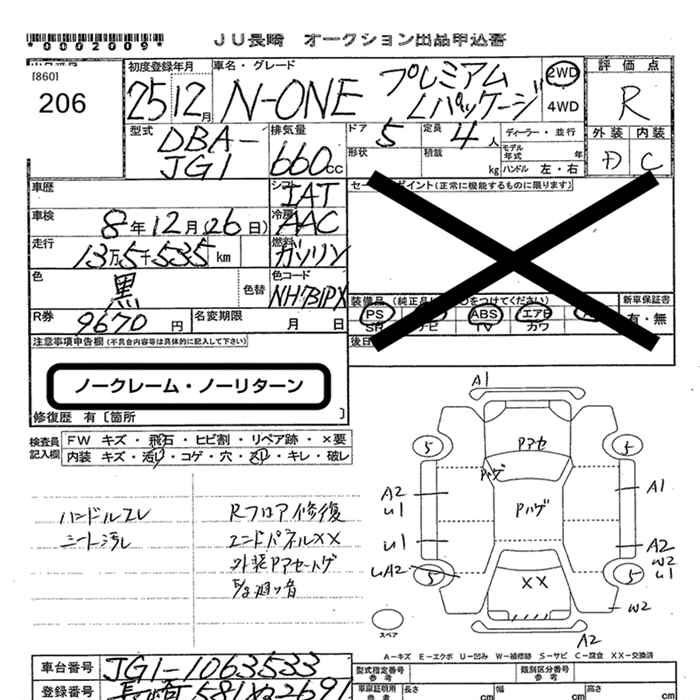 *0002009*
JU長崎 オークション出品申込書
[860]
206
初度登録年月
25 12月
車名・グレード
N-ONE プレミアム Lパッケージ
2WD
4WD
評価点
R
外装 内装
D C
型式
DBA-JG1
排気量
660cc
ドア 5
定員 4人
形状
積載 kg
ディーラー・並行
モデル年式 年
ハンドル 左・右
車歴
シフト IAT
車検 8年12月(26日)
冷房 AAC
走行 13万5千535km
燃料 ガソリン
色 黒
色替
色コード
R券 9670円
名変期限 月 日
(正常に機能するものに限ります)
装備品
新車保証書
有・無
PS
ABS
エアB
TV
カワ
後日
注意事項申告欄 (不具合内容等は具体的に記入して下さい)
ノークレーム・ノーリターン
修復歴 有〔箇所 〕
検査員記入欄
FW キズ・飛石・ヒビ割・リペア跡・×要
内装 キズ・汚れ・コゲ・穴・スリ・キレ・破レ
ハンドルスレ
シート汚レ
Rフロア修復
エンドパネルXX
外装Pアセハゲ
A1
5
5
Pアセ
Pハゲ
Pハゲ
A2
U1
A1
U1
A2
W2
U1
UA2
5
5
XX
W2
A2
スペア
A-キズ E-エクボ U-凹み W-補修跡 S-サビ C-腐食 XX-交換済
車台番号 JG1-1063533
登録番号
型式指定番号 参考
類別区分番号 参考
車庫証明用 参考
長さ cm
幅 cm
高さ cm